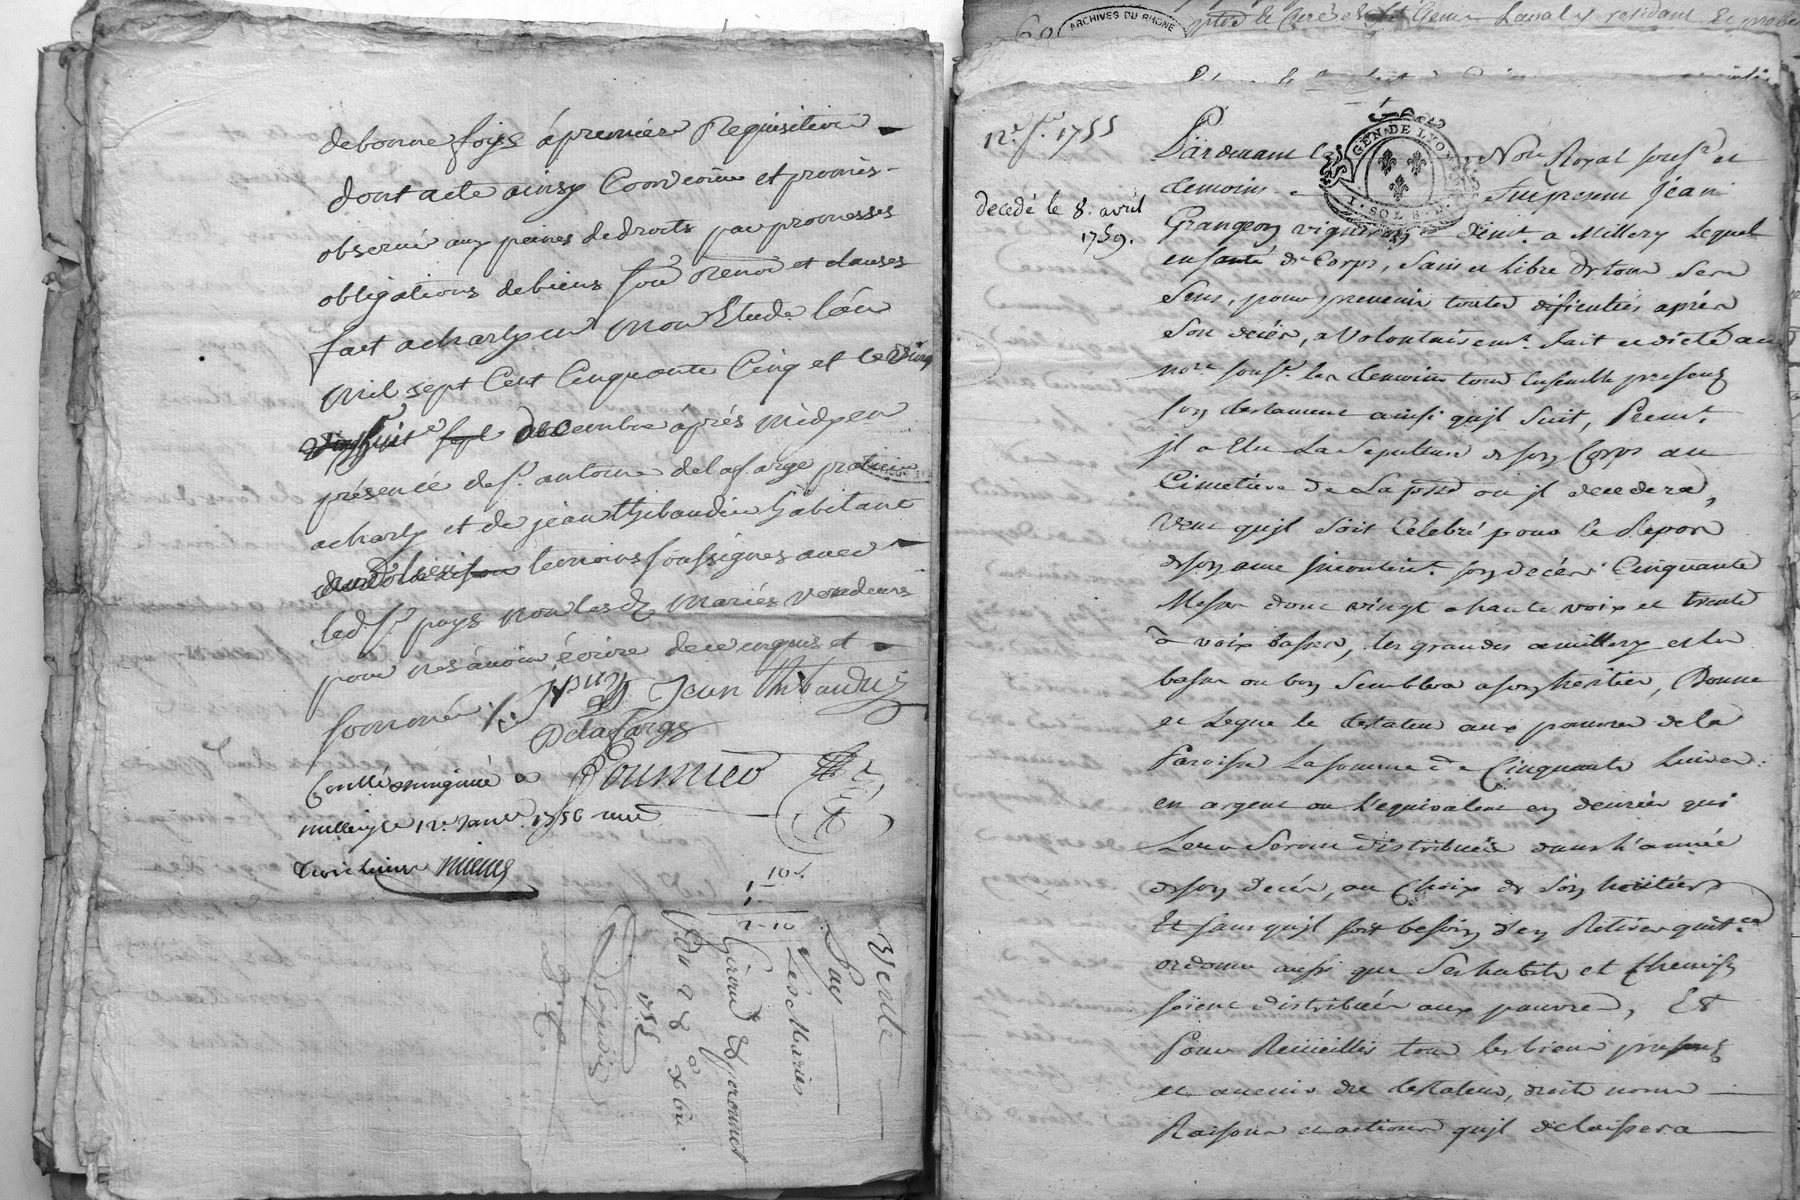 de bonne foys á premiére Requisition
dont acte ainsy Convenüe et promis
observé aux peines de droits par promesses
obligations de biens sou. Renon. et clauses
fait a charly en mon Etude l'án
mil sept Cent Cinquante Cinq et le vingt
huit.e sept decembre áprés midy en
présence de s.r antoine delafarge praticien
a charly et de jean thibaudier habitant
temoins soussignes avec
led. s.r pays non lesd. mariés vendeurs
pour ne sávoir écrire de ce enquis et
sommé
Jean Thibaudier
Delafarge
Fournier
Conllé insinué a
millery le 12.e Janv.r 1756 recu
trois livres
10 s.
1
1
2-10
Vente
Pays
Les Mariés
Girard &
Du 28 Xbre
1755
12.e 1755
decedé le 8. avril
1759.
ARCHIVES DU RHONE
GEN. DE LYON
1. SOL 8. D.
Pardevant Les Nore Royal sousé et
temoins fut present Jean
Grangeon vigneron demt. a Millery Lequel
en santé de Corps, sain et libre de tous ses
Sens, pour prevenir toutes dificultés aprés
Son decés, a Volontairemt. fait et dicté au
nore. sousé. les temoins tous Ensemble presens
son testament ainsi qujl suit, Premt.
jl a Elu La Sepulture de son Corps au
Cimetiere de La psse ou jl decedera,
Veut qujl soit Celebré pour le Repos
de son ame jncontint. son decés Cinquante
Messes dont vingt a haute voix et trente
a voix basse, les grandes a millery et les
basses ou bon semblera a son heritier, Donne
et Legue le testateur aux pauvres de la
Paroisse La somme de Cinquante Livres
en argent ou l'equivalent en denrées qui
Leur Seront distribuées dans l'année
de son decés, au Choix de son heritier
Et sans qujl soit besoin d'en Retirer quitce
ordonne aussi que Ses habits et chemises
soient distribuées aux pauvres, Et
Pour Recüeillir tous les biens presens
et avenir du testateur, droits noms
Raisons et actions qujl delaissera